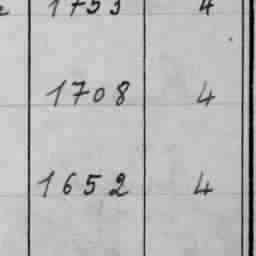 1753 4
1708 4
1652 4